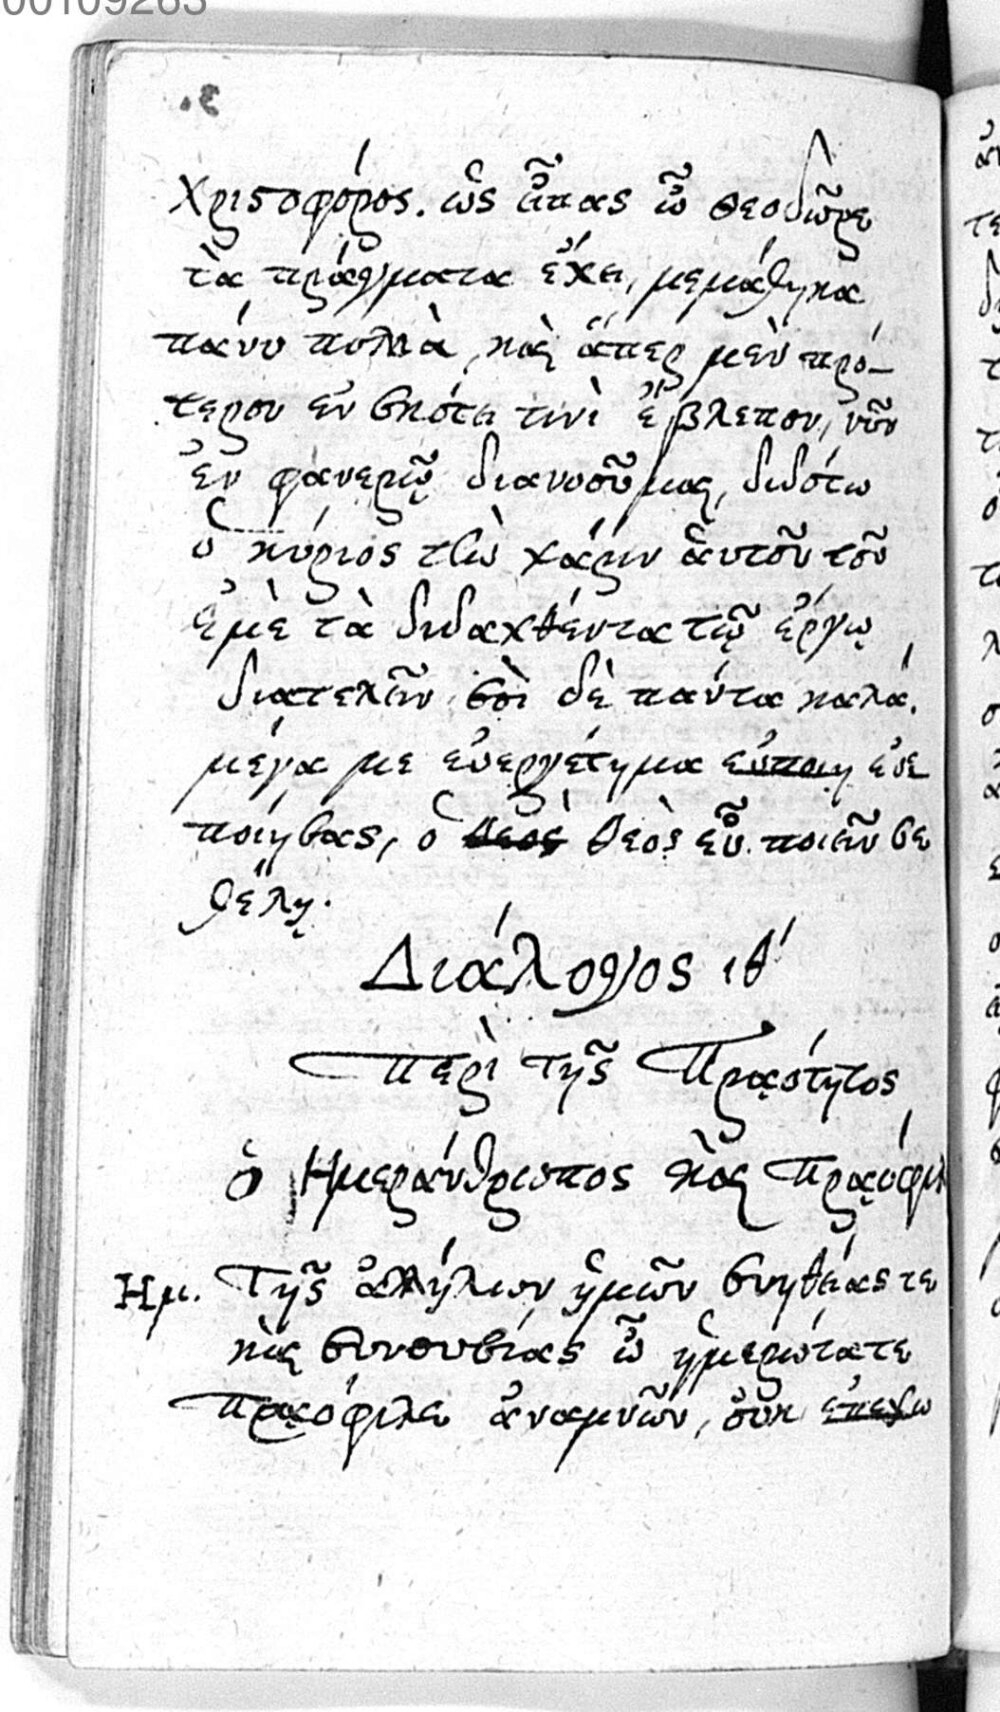 00109263
Χριστοφόρος. ὡς εἶπας ὦ θεοδῶρε
τὰ πράγματα ἔχει, μεμάθηκα
πάνυ πολλὰ, καὶ ἅπερ μὲν πρό-
τερον ἐν σκότει τινὶ ἔβλεπον, νῦν
ἐν φανερῷ διανοοῦμαι, διδότω
ὁ κύριος τὴν χάριν ἀυτοῦ τοῦ
ἐμὲ τὰ διδαχθέντα τῷ ἔργῳ
διατελεῖν σὸι δὲ πάντα καλά.
μέγα με εὐεργέτημα εὐποιη ἐνε
ποίησας, ὁ θεὸς θεὸς εὖ ποιεῖν σε
θέλῃ.
Διάλογος ιθ΄
Περὶ τῆς Πρᾳότητος
ὁ Ἡμεράνθρωπος καὶ Πρᾳόφιλ
Ημ. Τῆς ἀλλήλων ἡμῶν συνηθείας τε
καὶ συνουσίας ὦ ἡμερώτατε
Πρᾳόφιλε ἀναμνῶν, οὐκ ἐπεχω